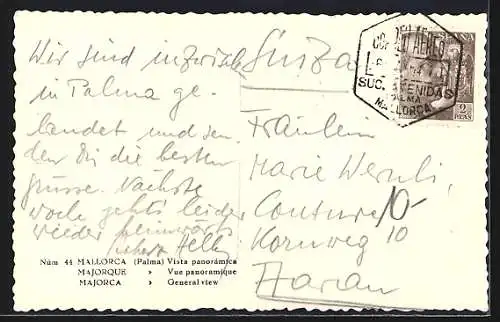 Wir sind inzwischen
in Palma ge-
landet und sen-
den Dir die besten
Grüsse. Nächste
Woche geht's leider
wieder heimwärts
Núm 44 MALLORCA (Palma) Vista panorámica
MAJORQUE » Vue panoramique
MAJORCA » General view
CORREO AEREO
SUC. AVENIDAS
PALMA
MALLORCA
2
PTAS
Fräulein
Marie Wernli,
Couture
Kornweg 10
Aarau